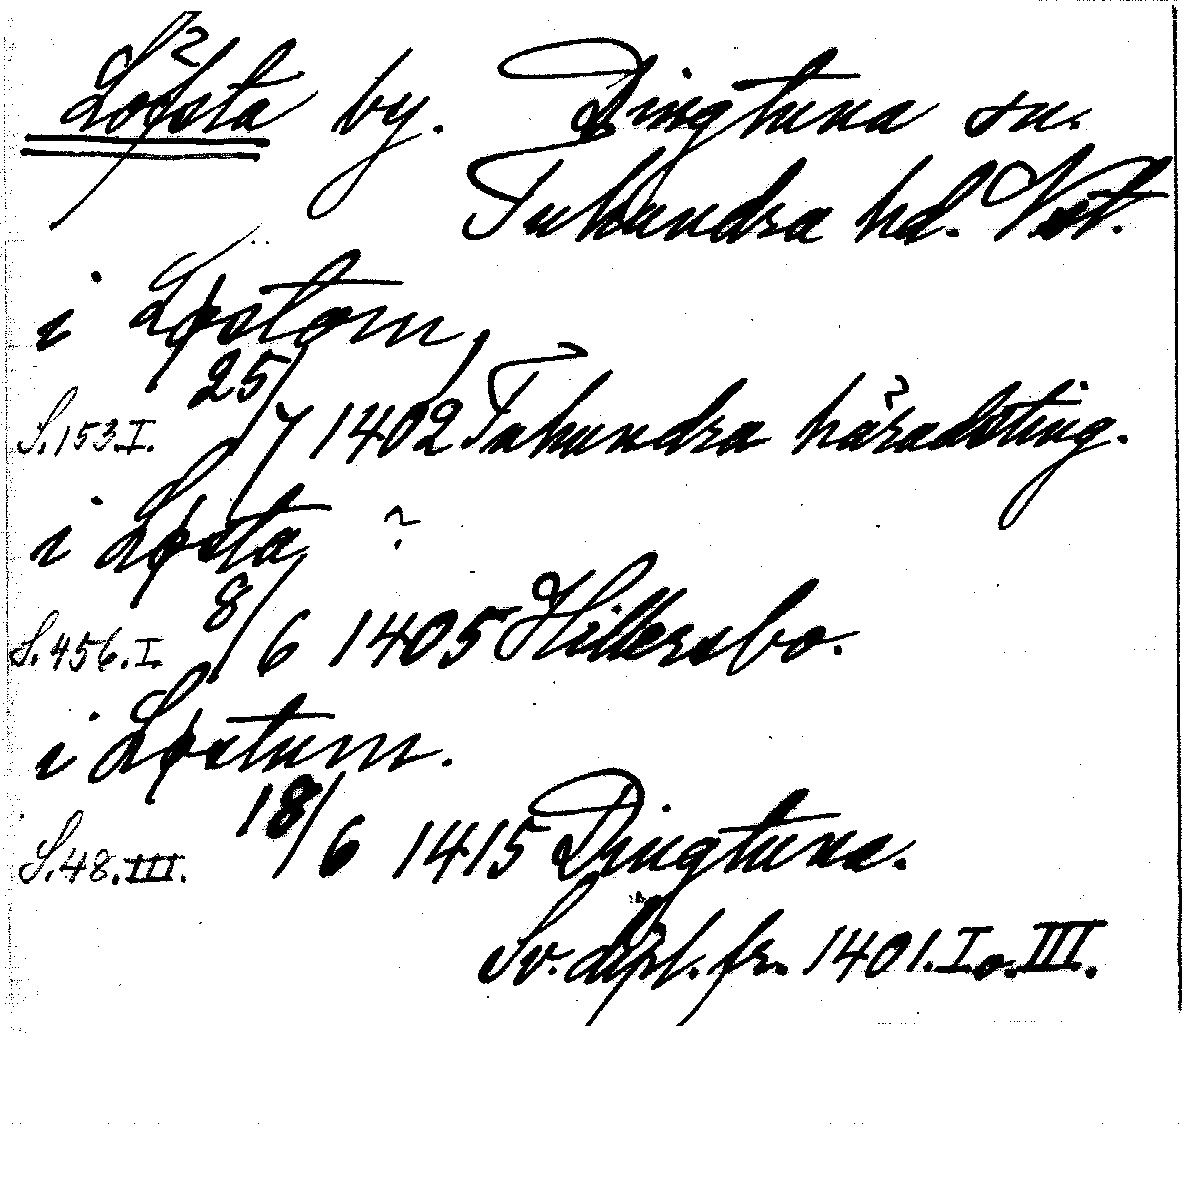 Löfsta by. Dingtuna sn.
Tuhundra hd. Vstl.
i Løstom,
S. 153. I. 25/7 1402 Tuhundra häradsting.
i Løsta ?
S. 456. I. 8/6 1405 Hillersbo.
i Løstum.
S. 48. III. 18/6 1415 Dingtuna.
Sv. dipl. fr. 1401. I o. III.